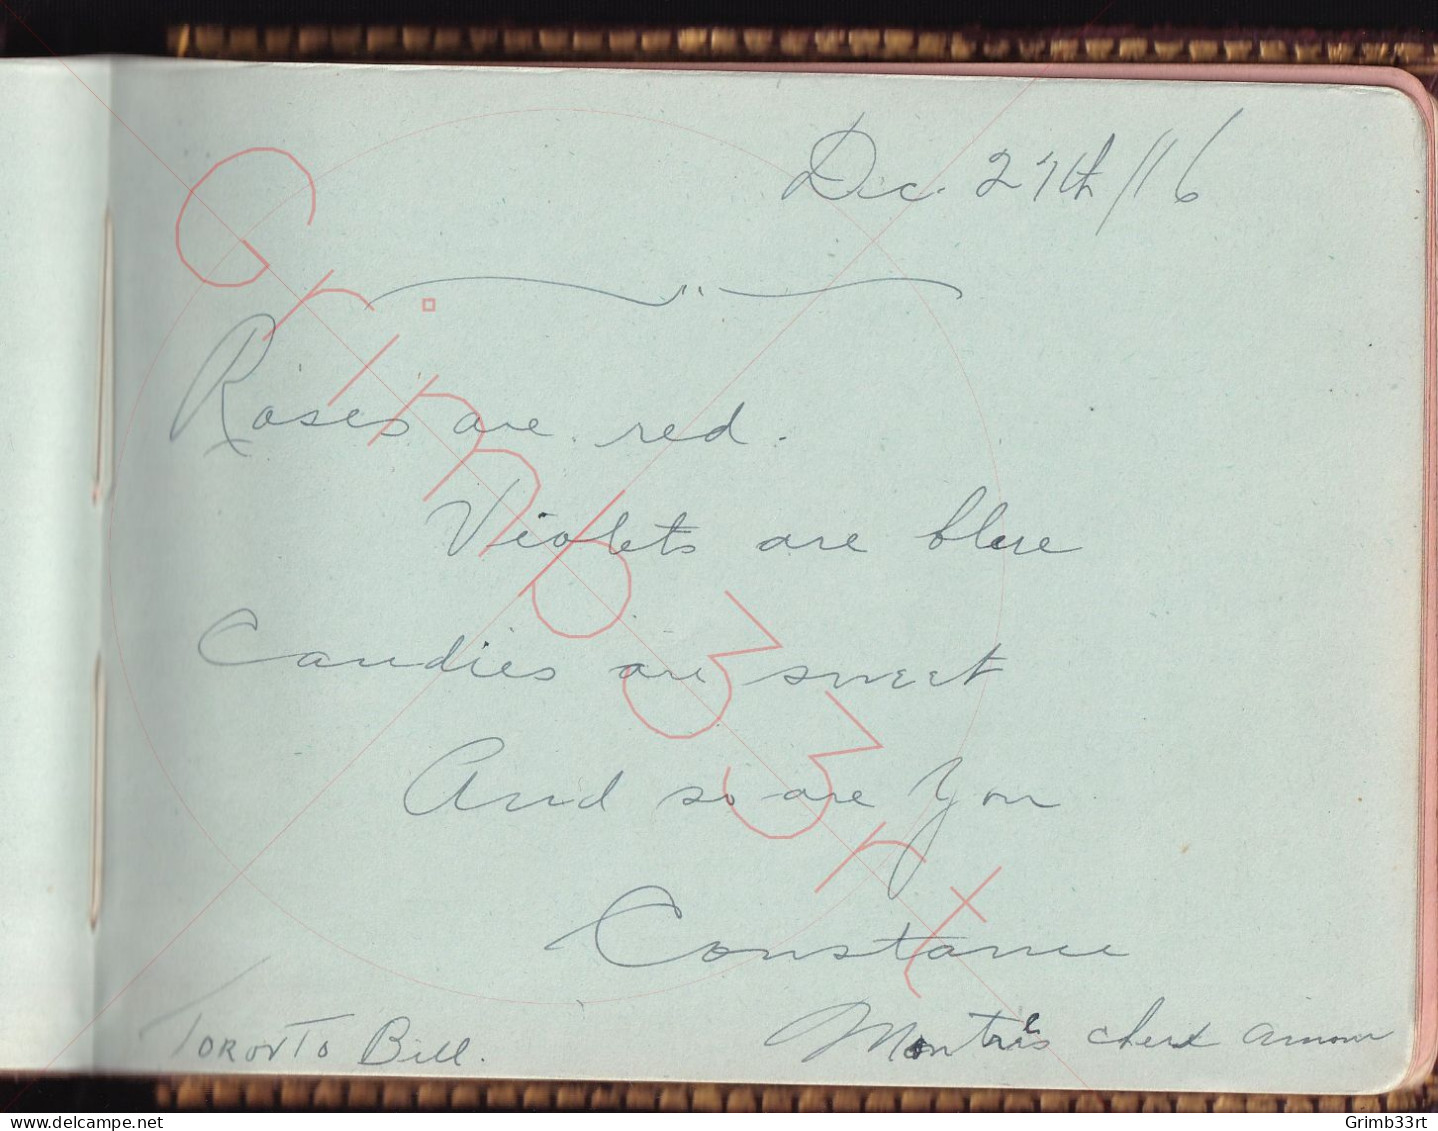 Dec. 27th/16
Roses are red.
Violets are blue
Candies are sweet
And so are you
Constance
Toronto Bill.
Mon très cher amour
Grimb33rt
Grimb33rt